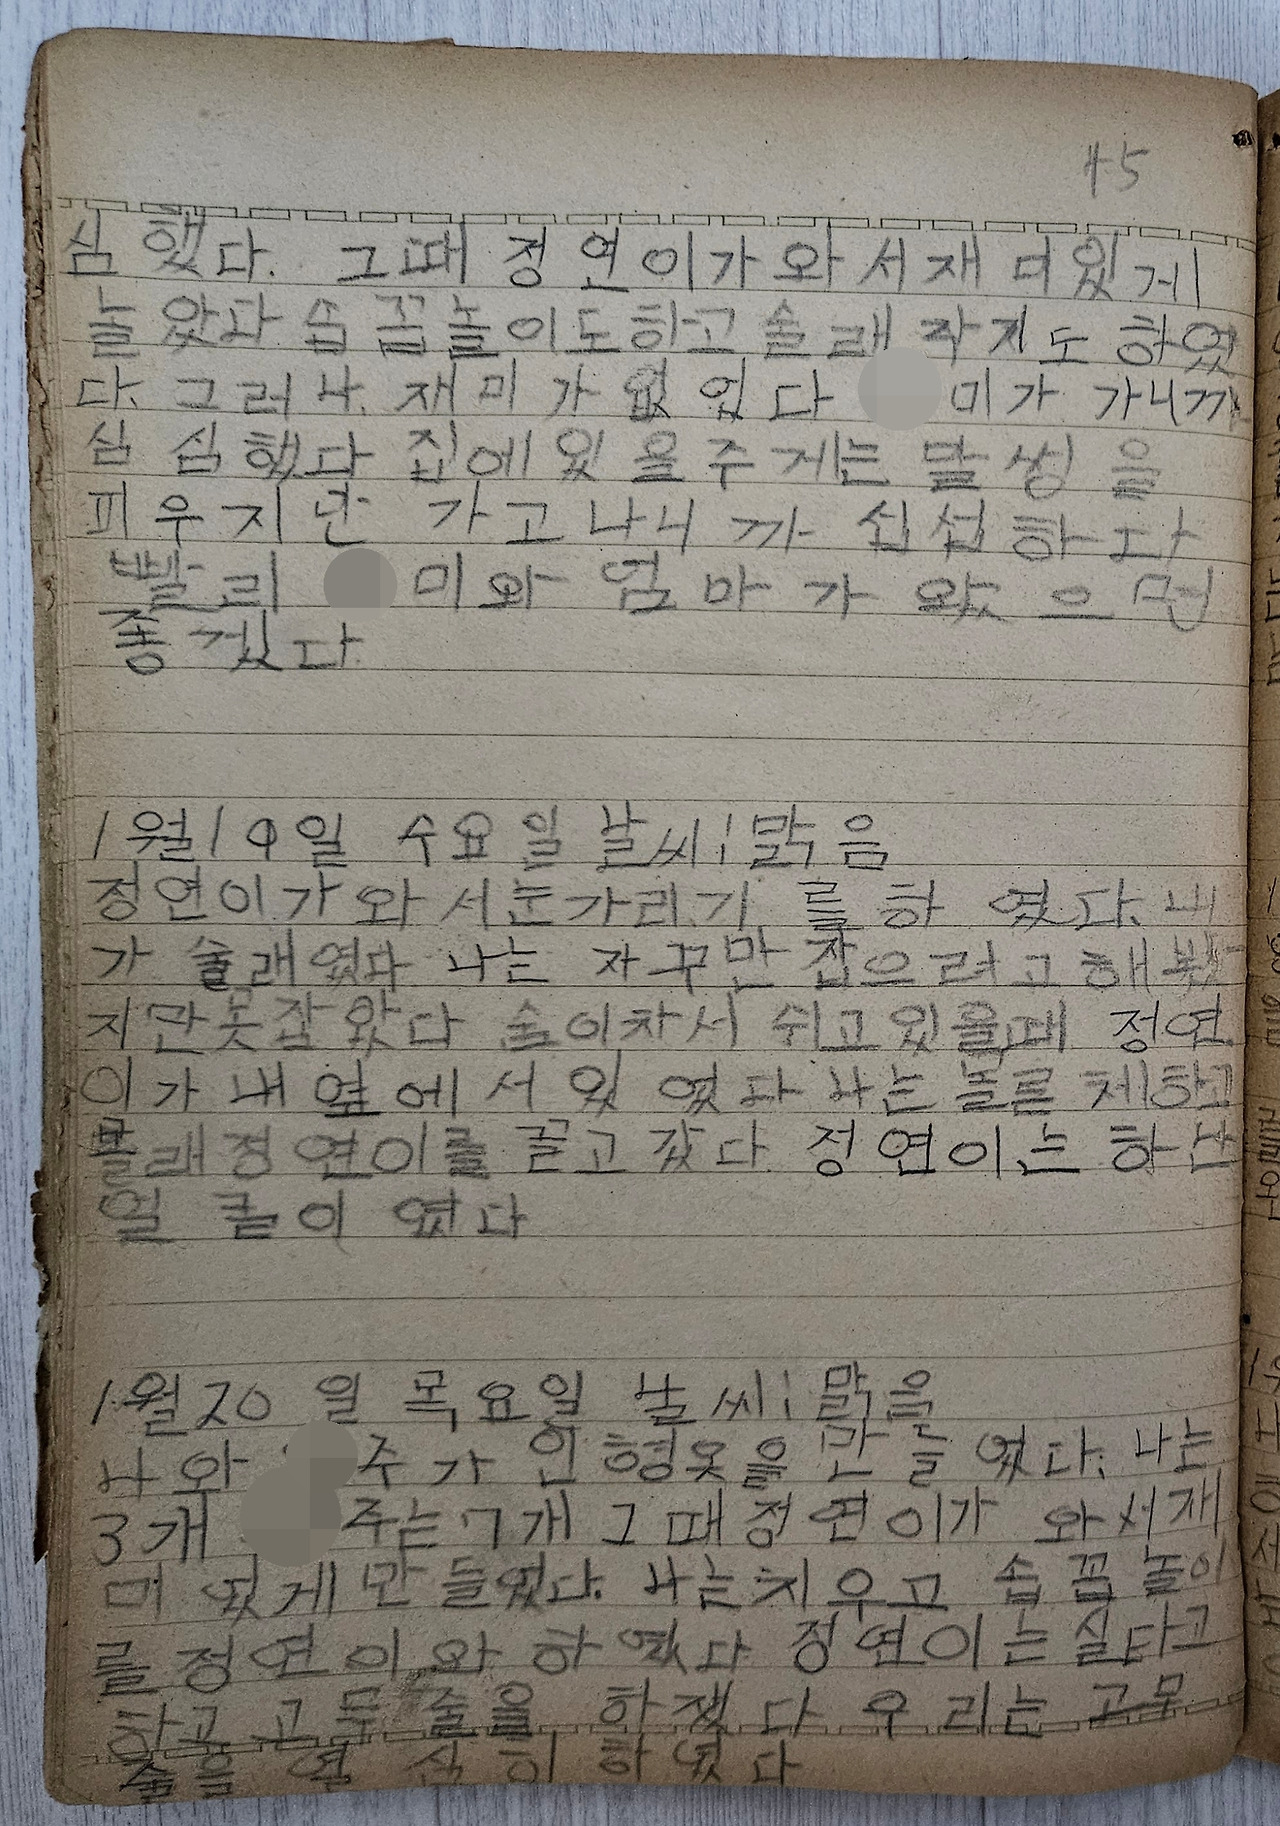 45
심했다. 그때 정연이가와서재미있게
놀았다 습꼽놀이도하고 술래작기도 하였
다. 그러나. 재미가 없었다 미가 가니까
심심했다 집에 있을주게는 말썽을
피우지만 가고나니까 섭섭하다
빨리 미와 엄마가 왔으면
좋겠다
1월19일 수요일 날씨:맑음
정연이가와서눈가리기를 하였다. 내
가 술래였다 나는 자꾸만 잡으려고 해봤
지만못잡았다 숨이차서 쉬고있을때 정연
이가 내옆에서 있었다 나는 놀른체하고
몰래정연이를 끌고갔다 정연이는 하난
얼굴이였다
1월20일 목요일 날씨:맑음
나와 주가 인형옷을 만들었다. 나는
3개 주는7개 그때정연이가 와서재
미있게 만들었다. 나는치우고 솝꼽놀이
를 정연이와 하였다 정연이는 실타고
하고 고무줄을 하쟀다 우리는 고무
줄을 열심히 하였다